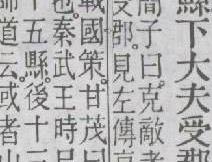 縣下大夫受
簡子曰克敵者
受郡。見左傳
戰國策。甘茂曰
也。秦武王時
十五縣。後十
道云。或者